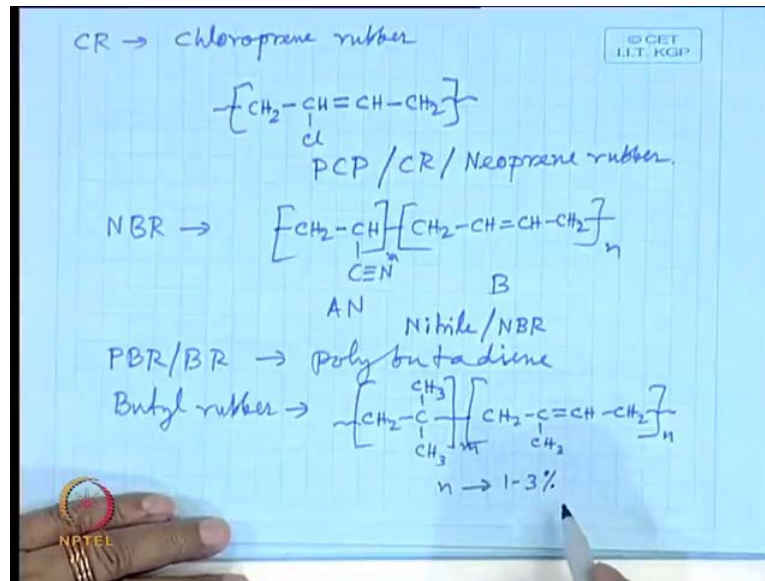 CR → Chloroprene rubber
© CET
I.I.T. KGP
-[CH₂-CH=CH-CH₂]-
Cl
PCP/CR/Neoprene rubber.
NBR → [CH₂-CH]m[CH₂-CH=CH-CH₂]n
C≡N
AN
B
Nitrile/NBR
PBR/BR → polybutadiene
CH₃
Butyl rubber → ~[CH₂-C]m[CH₂-C=CH-CH₂]n
CH₃ CH₃
n → 1-3%
NPTEL